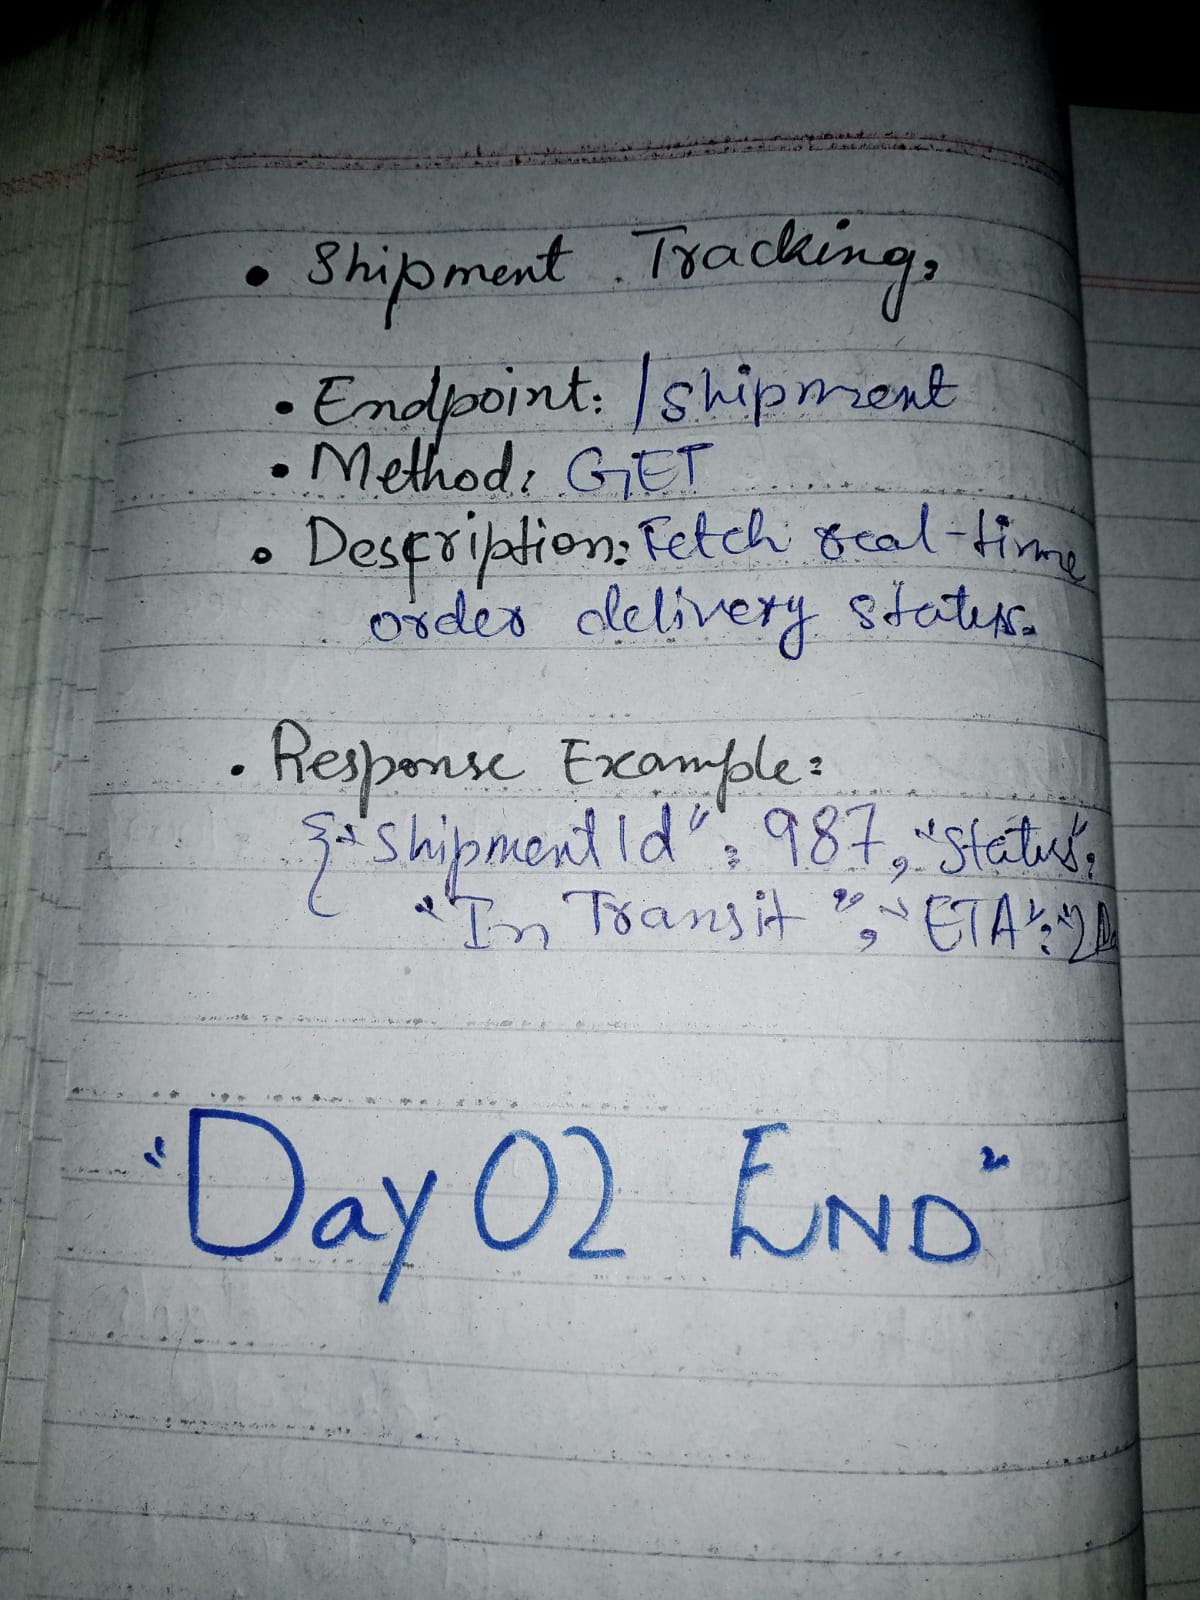 • Shipment Tracking:
• Endpoint: /shipment
• Method: GET
• Description: Fetch real-time
order delivery status.
• Response Example:
{"ShipmentId": 987, "Status":
"In Transit", "ETA":
"Day 02 END"